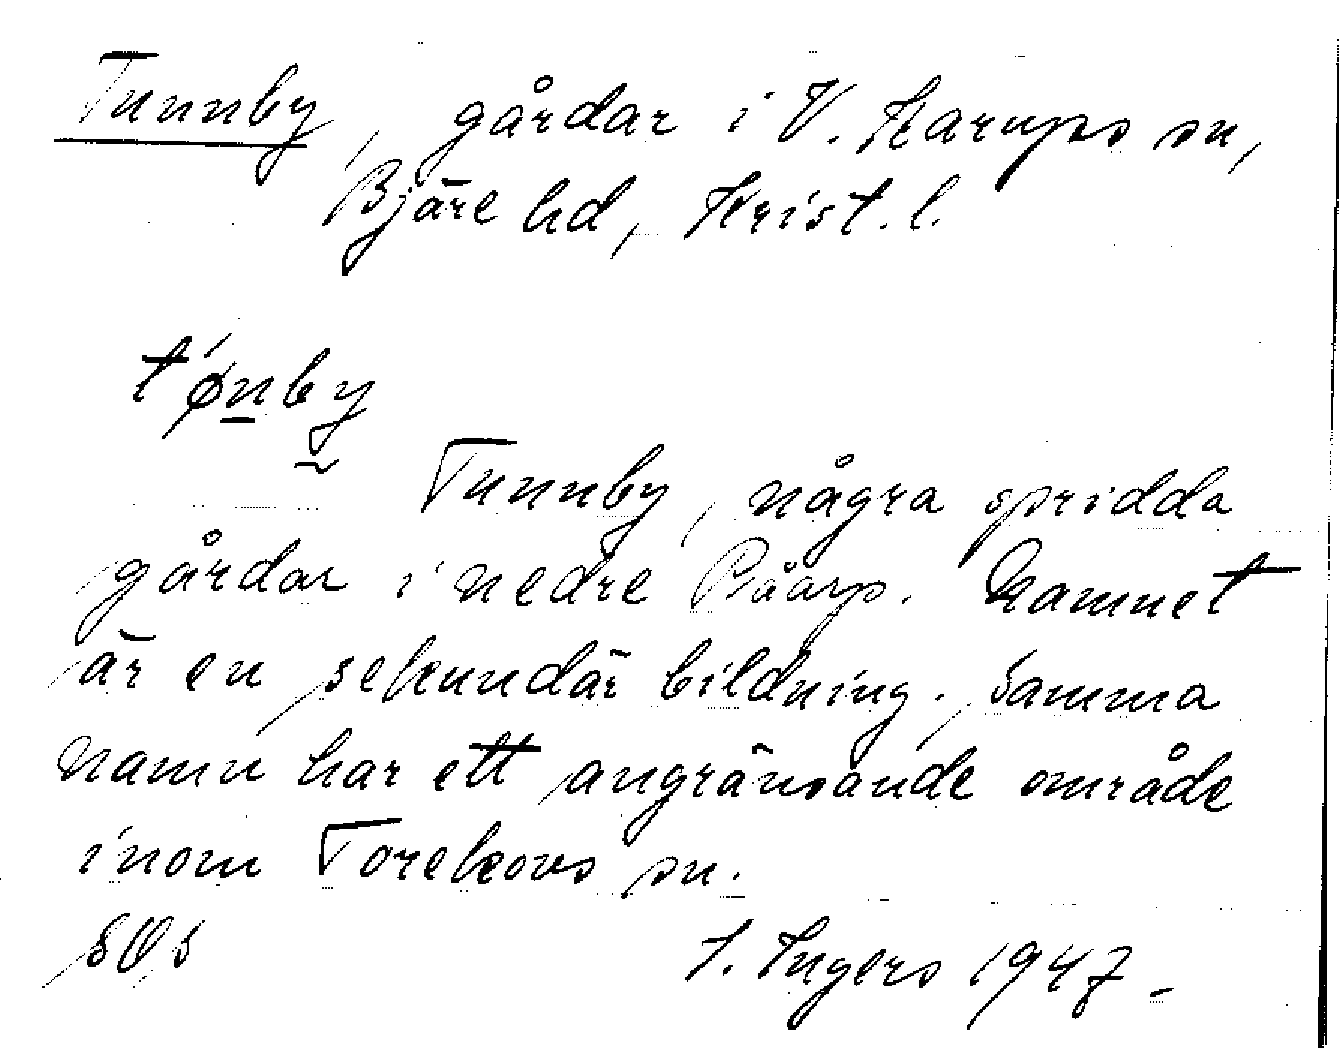 Tunnby, gårdar i V. Karups sn,
Bjäre hd, Krist. l.
tǿn̲by̰
Tunnby, några spridda
gårdar i nedre Påarp. Namnet
är en sekundär bildning. Samma
namn har ett angränsande område
inom Torekovs sn.
I. Ingers 1947 -